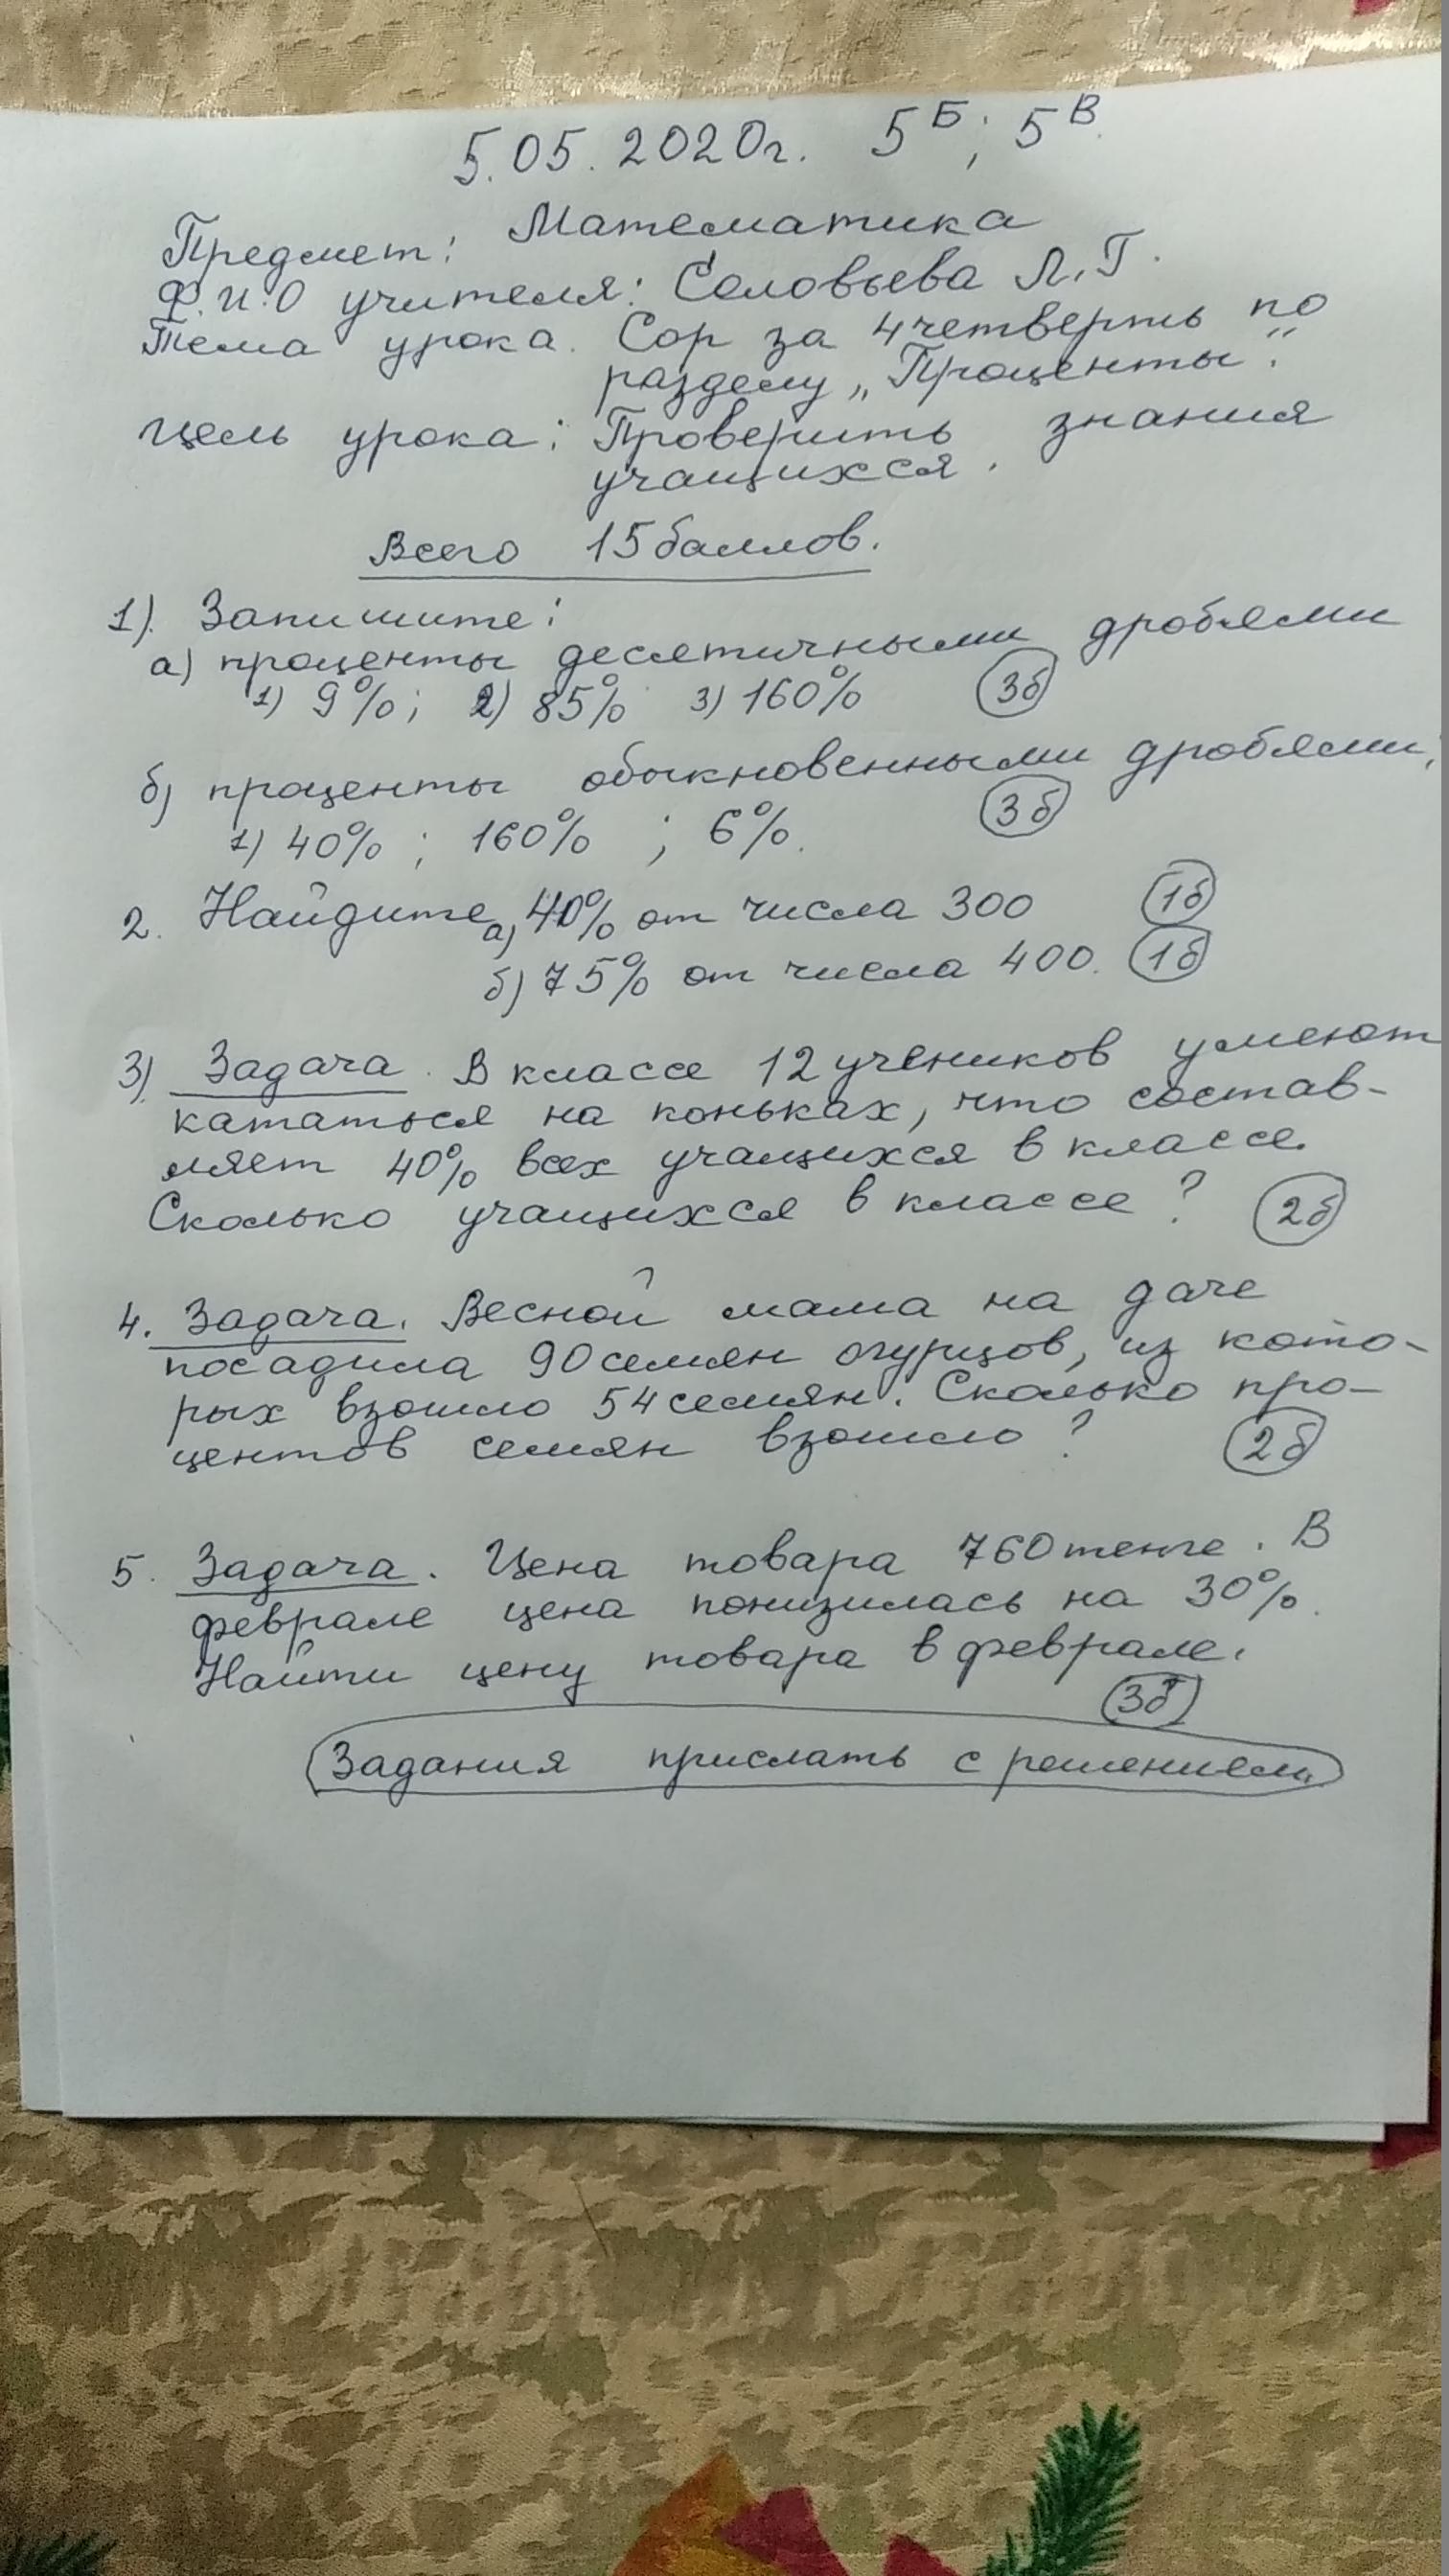 5.05.2020г. 5Б; 5В.
Предмет: Математика
Ф.И.О учителя: Соловьева Л.Г.
Тема урока. Сор за 4 четверть по
разделу „Проценты".
Цель урока: Проверить знания
учащихся.
Всего 15 баллов.
1). Запишите:
а) проценты десятичными дробями
1) 9%; 2) 85% 3) 160% 3б
б) проценты обыкновенными дробями;
1) 40% ; 160% ; 6%. 3б
2. Найдите а) 40% от числа 300 1б
б) 75% от числа 400. 1б
3) Задача. В классе 12 учеников умеют
кататься на коньках, что состав-
ляет 40% всех учащихся в классе.
Сколько учащихся в классе? 2б
4. Задача. Весной мама на даче
посадила 90 семян огурцов, из кото-
рых взошло 54 семян. Сколько про-
центов семян взошло? 2б
5. Задача. Цена товара 760 тенге. В
феврале цена понизилась на 30%.
Найти цену товара в феврале.
3б
Задания прислать с решением.